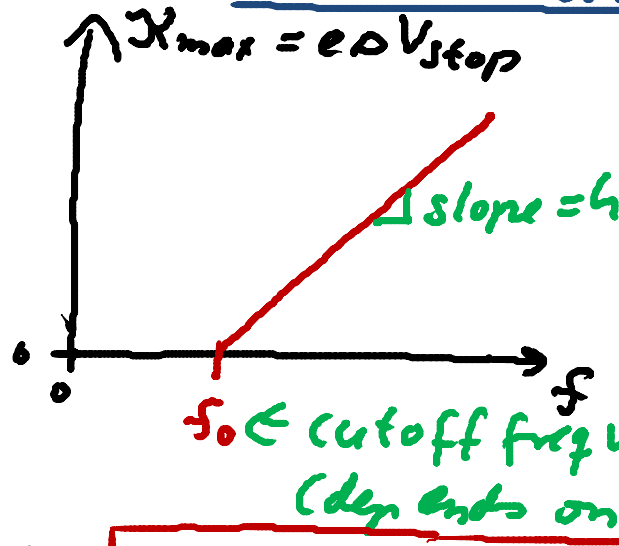 Kmax = eΔVstop
slope = h
0
0
f
f₀ ← cutoff freq
(depends on